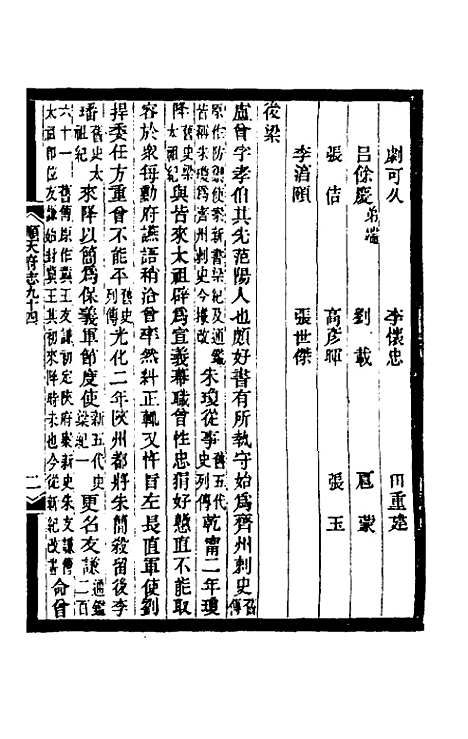 劇可久 李懷忠 田重建
呂餘慶 弟端 劉載 扈蒙
張佶 高彥暉 張玉
李滔頤 張世傑
後梁
盧曾字孝伯其先范陽人也頗好書有所執守始爲齊州刺史 舊傳
原作防禦使案新書梁紀及通鑑皆稱朱瓊爲齊州刺史今據改 朱瓊從事 舊五代史列傳 乾甯二年瓊
降 舊史梁太祖紀 與皆來太祖辟爲宣義幕職曾性忠狷好戆直不能取
容於衆每勳府讌語稍洽曾率然糾正輒又忤旨左長直軍使劉
捍委任方重曾不能平 舊史列傳 光化二年陝州都將朱簡殺留後李
璠 舊史太祖紀 來降以簡爲保義軍節度使 新五代史梁紀一 更名友謙 通鑑二百
六十一 舊傳原作冀王友謙初定陝府案新史朱友謙傳太祖卽位友謙始封冀王其初來降時未也今從新紀改書 命曾
順天府志九十四
二